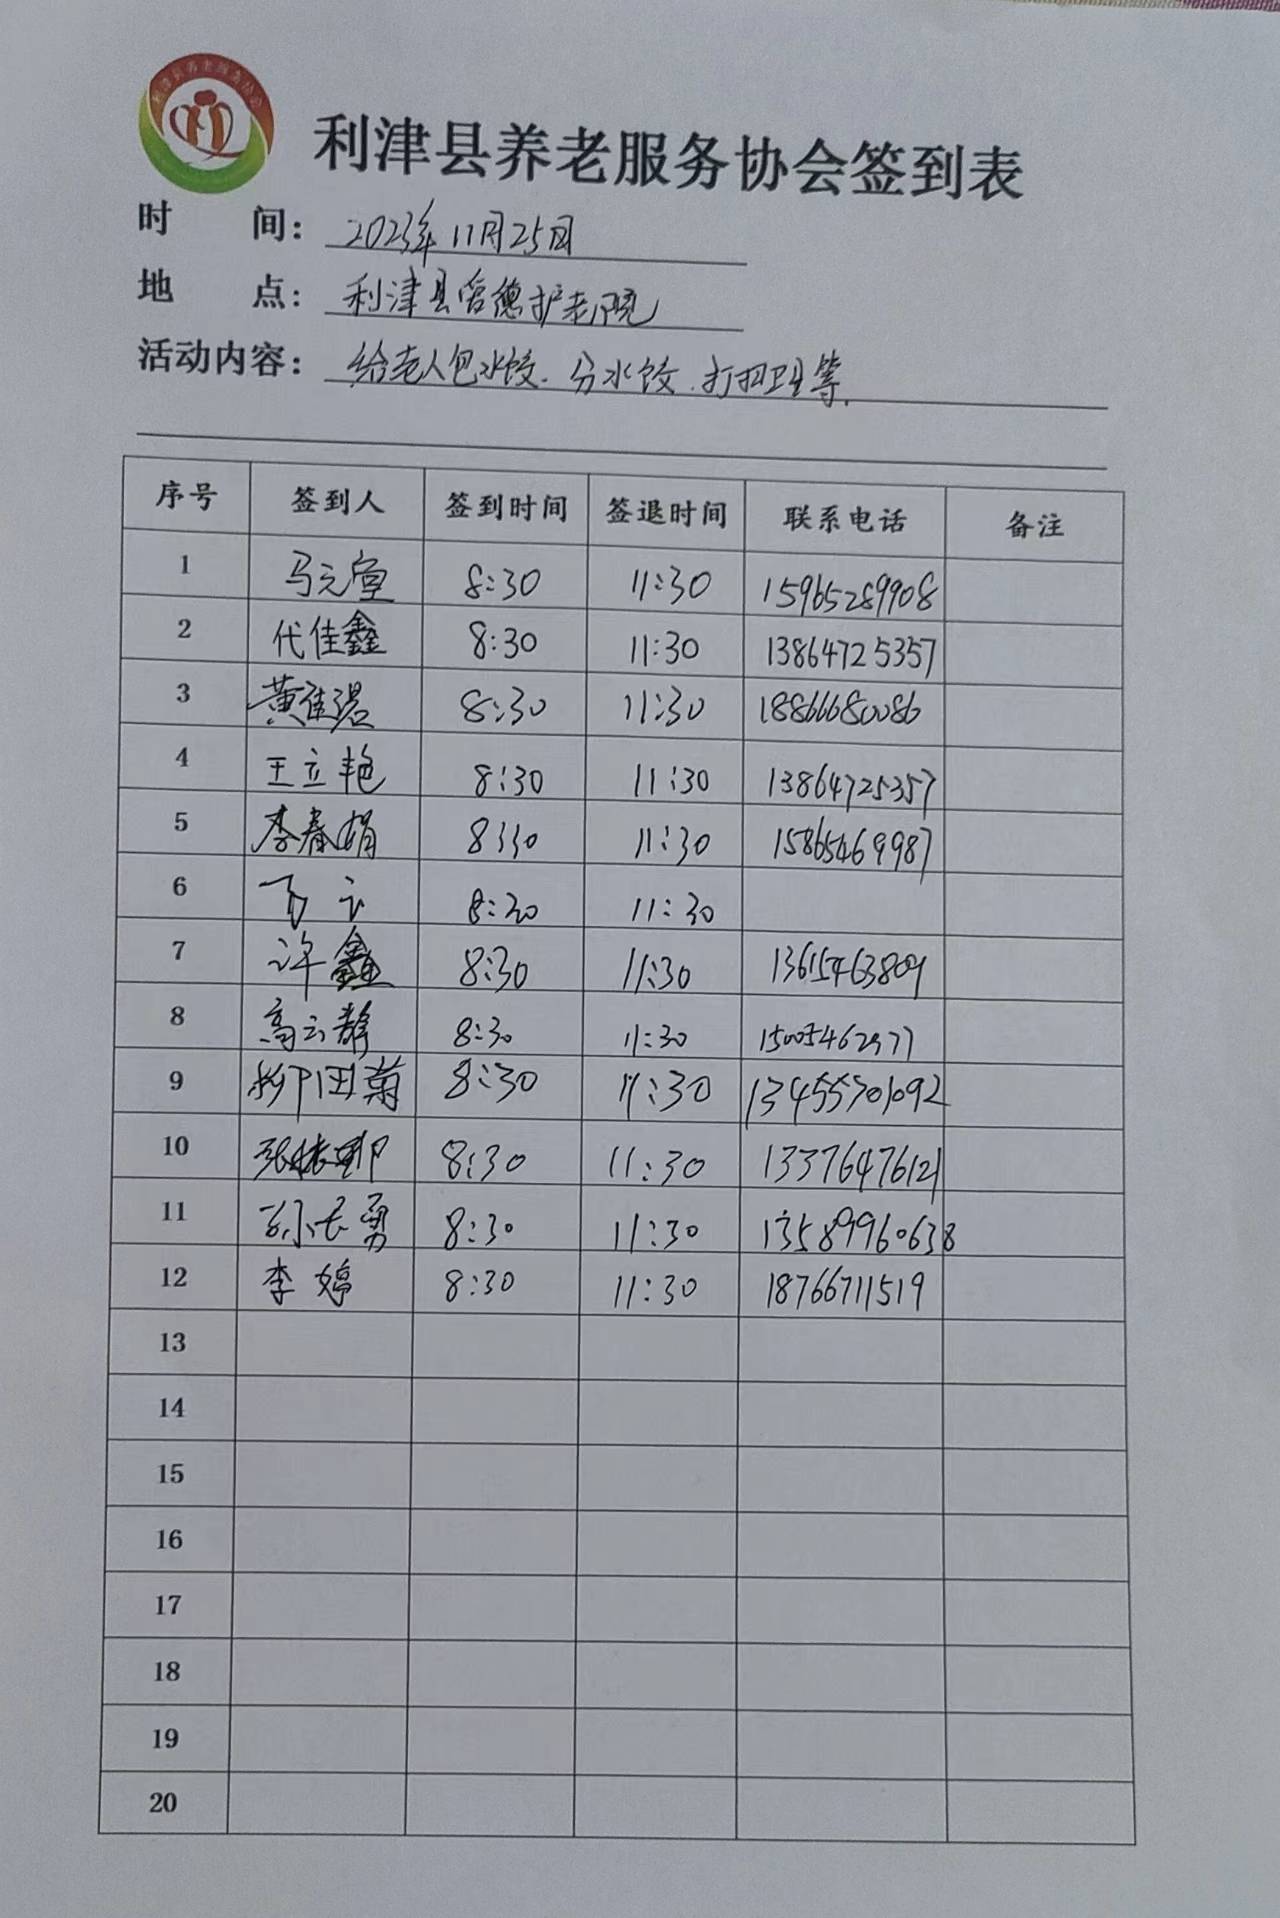 利津县养老服务协会
利津县养老服务协会签到表
时 间：2023年11月25日
地 点：利津县 德护老院
活动内容：给老人包水饺、分水饺、打扫卫生等.
序号 签到人 签到时间 签退时间 联系电话 备注
1 马元宣 8:30 11:30 15965289908
2 代佳鑫 8:30 11:30 13864725357
3 黄 8:30 11:30 18866680086
4 王立艳 8:30 11:30 13864725357
5 李春娟 8:30 11:30 15865469987
6 8:30 11:30
7 许鑫 8:30 11:30 13615463809
8 高云静 8:30 11:30 15005462977
9 柳田菊 8:30 11:30 13455701092
10 张 8:30 11:30 13376476121
11 孙长勇 8:30 11:30 13589960638
12 李婷 8:30 11:30 18766711519
13
14
15
16
17
18
19
20